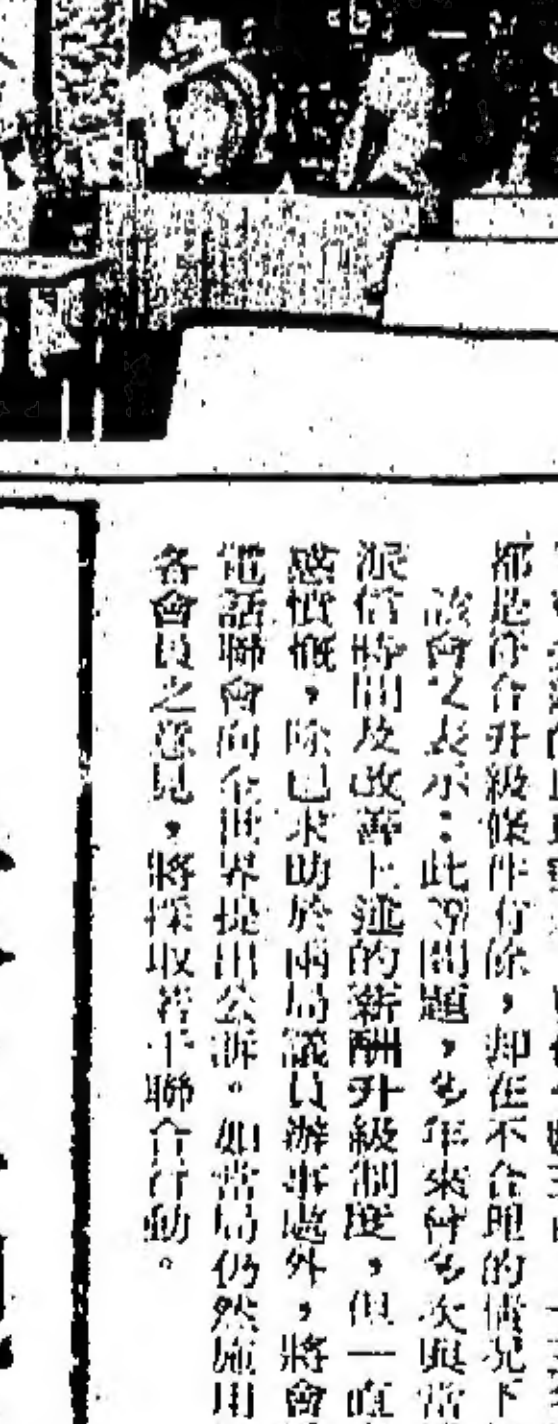 都是符合升級條件有餘，却在不合理的情況下
該會又表示：此等問題，多年來曾多次與當
派信時間及改善上述的薪酬升級制度，但一直
感憤慨，除已求助於兩局議員辦事處外，將會
電話聯會向全世界提出公訴。如當局仍然施用
各會員之意見，將採取若干聯合行動。